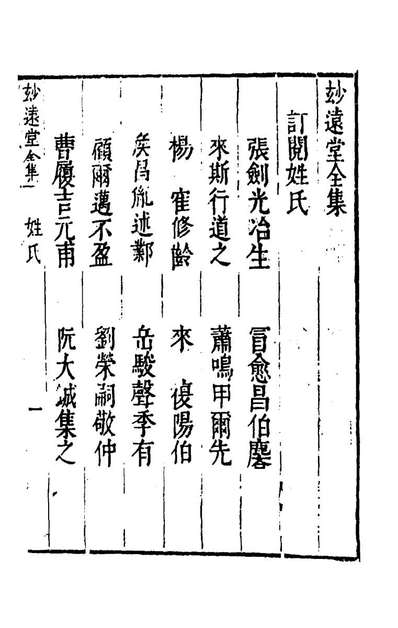 玅遠堂全集
訂閱姓氏
張劍光冶生 冒愈昌伯麐
來斯行道之 蕭鳴甲爾先
楊 寉修齡 來 復陽伯
矦昌胤述 岳駿聲季有
顧爾邁不盈 劉榮嗣敬仲
曹履吉元甫 阮大鋮集之
玅遠堂全集 姓氏 一